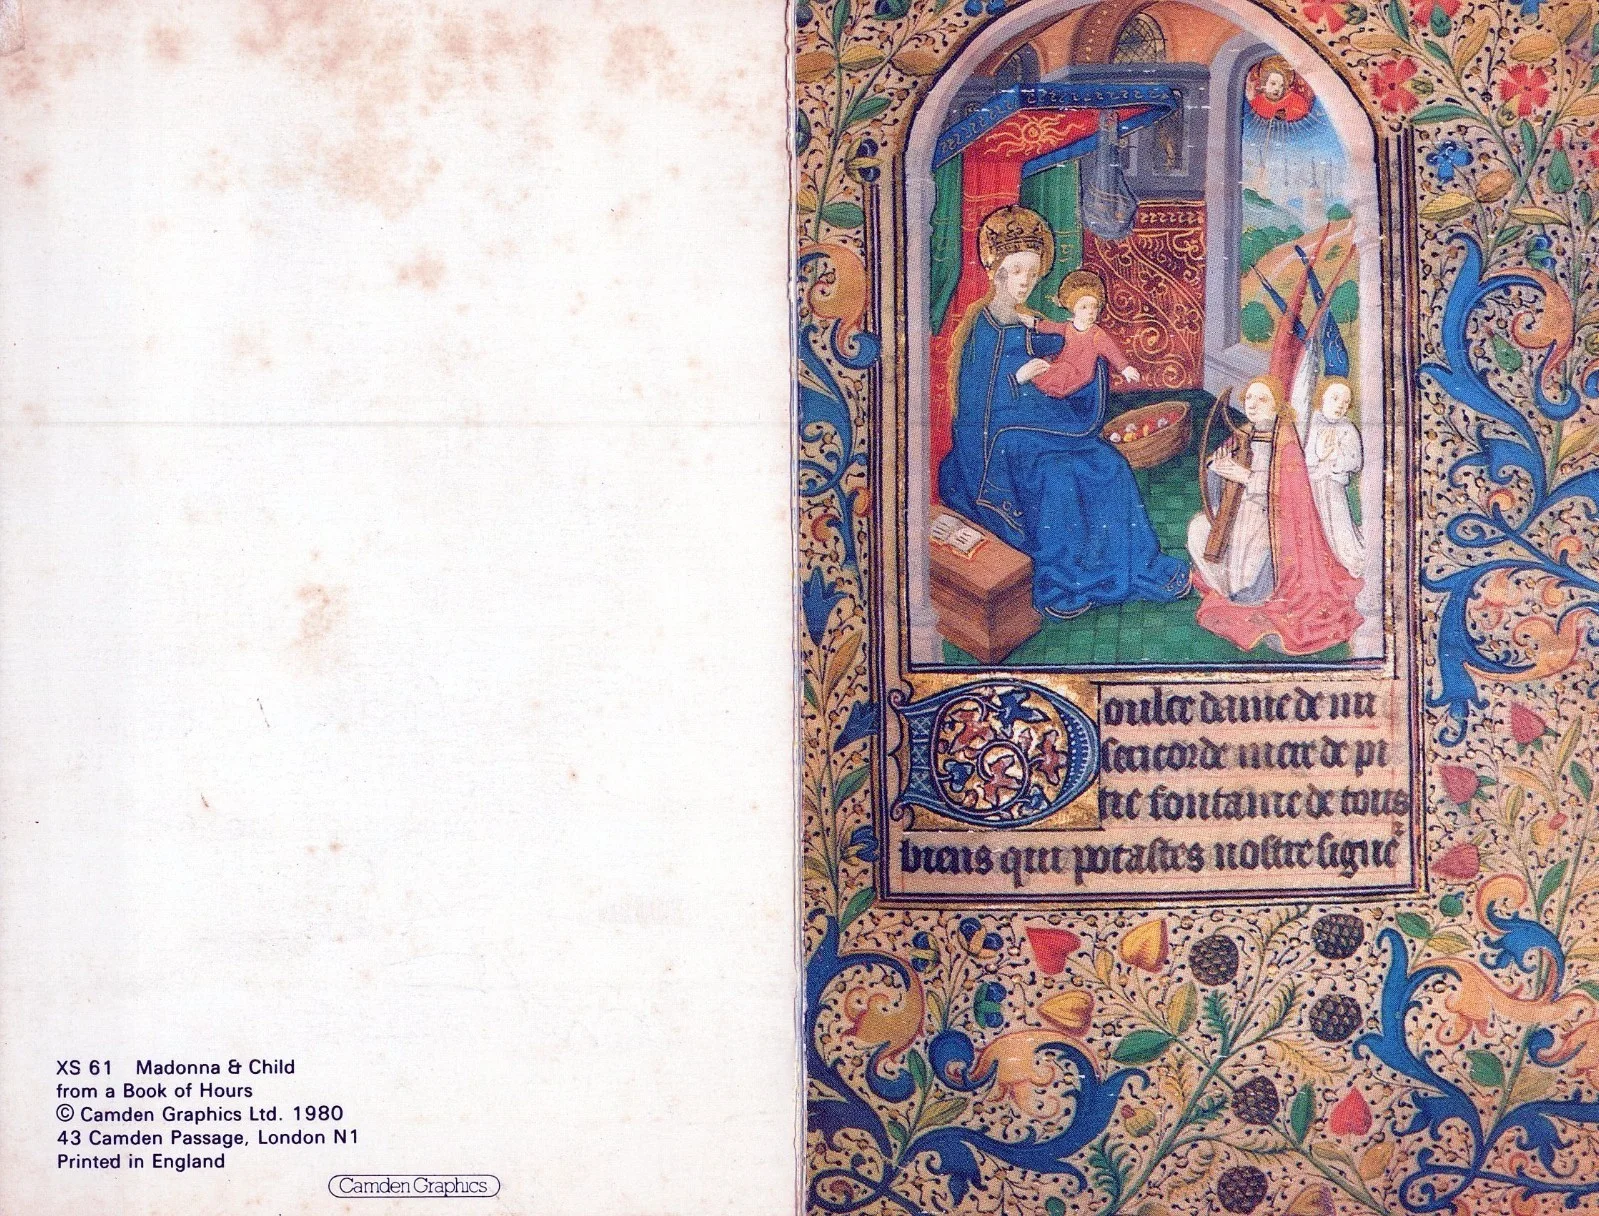 XS 61 Madonna & Child
from a Book of Hours
© Camden Graphics Ltd. 1980
43 Camden Passage, London N1
Printed in England
Camden Graphics
Doulce dame de mi
sericorde mere de pi
tie fontaine de tous
biens qui portastes nostre signe